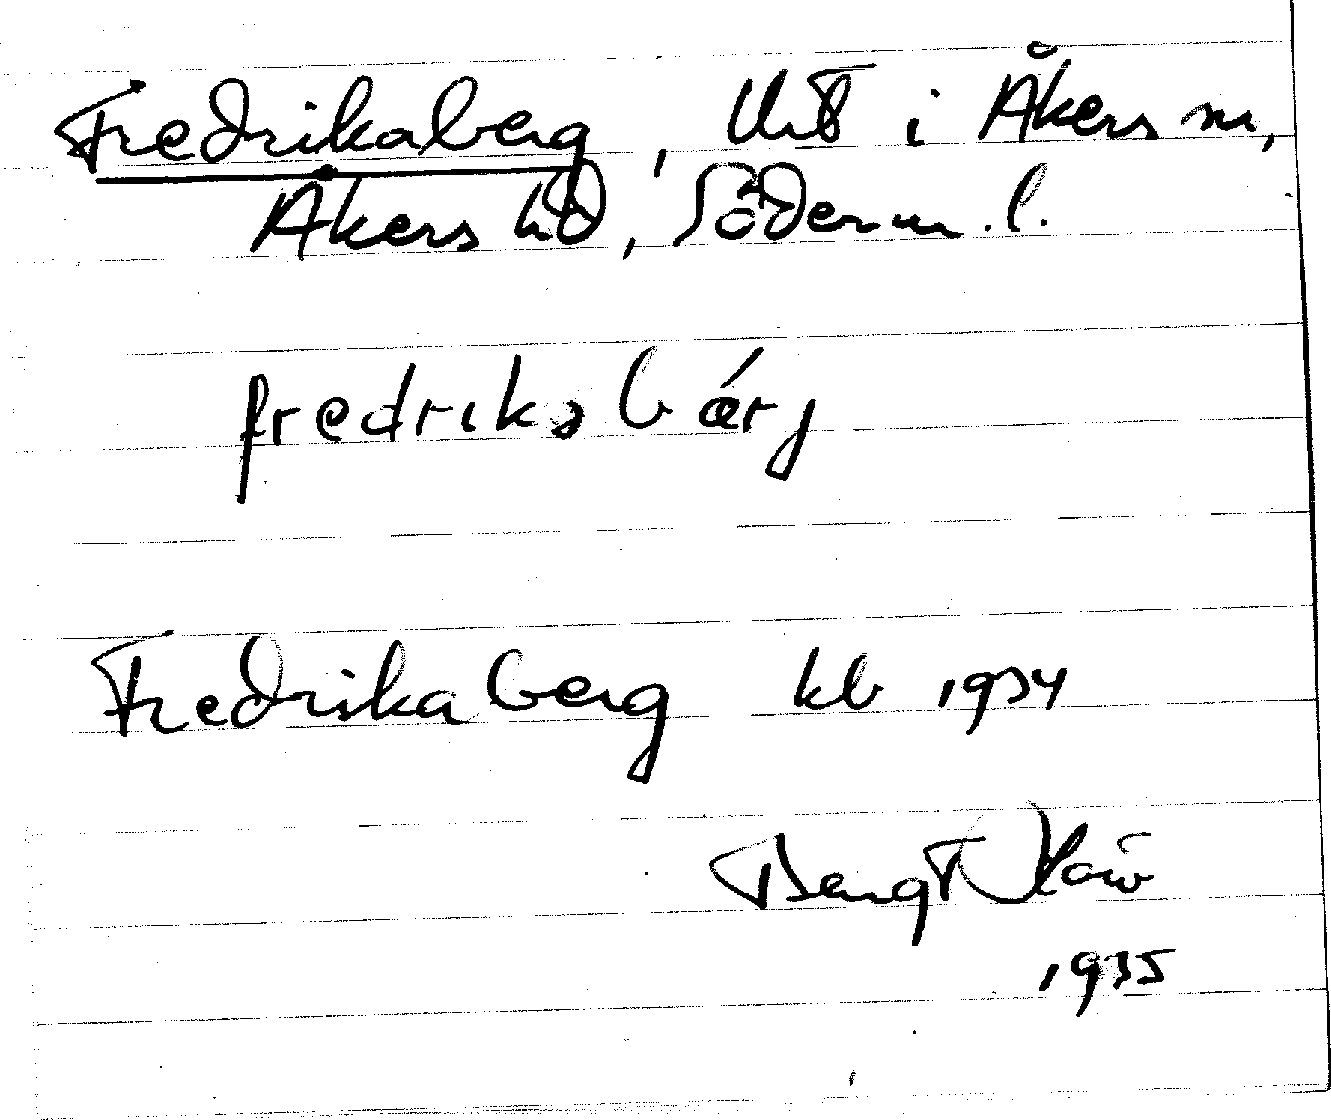 Fredrikaberg, Utt i Åkers sn,
Åkers hd, Söderm. l.
fredriksbǽrj
Fredrikaberg kb 1934
Bengt
1935